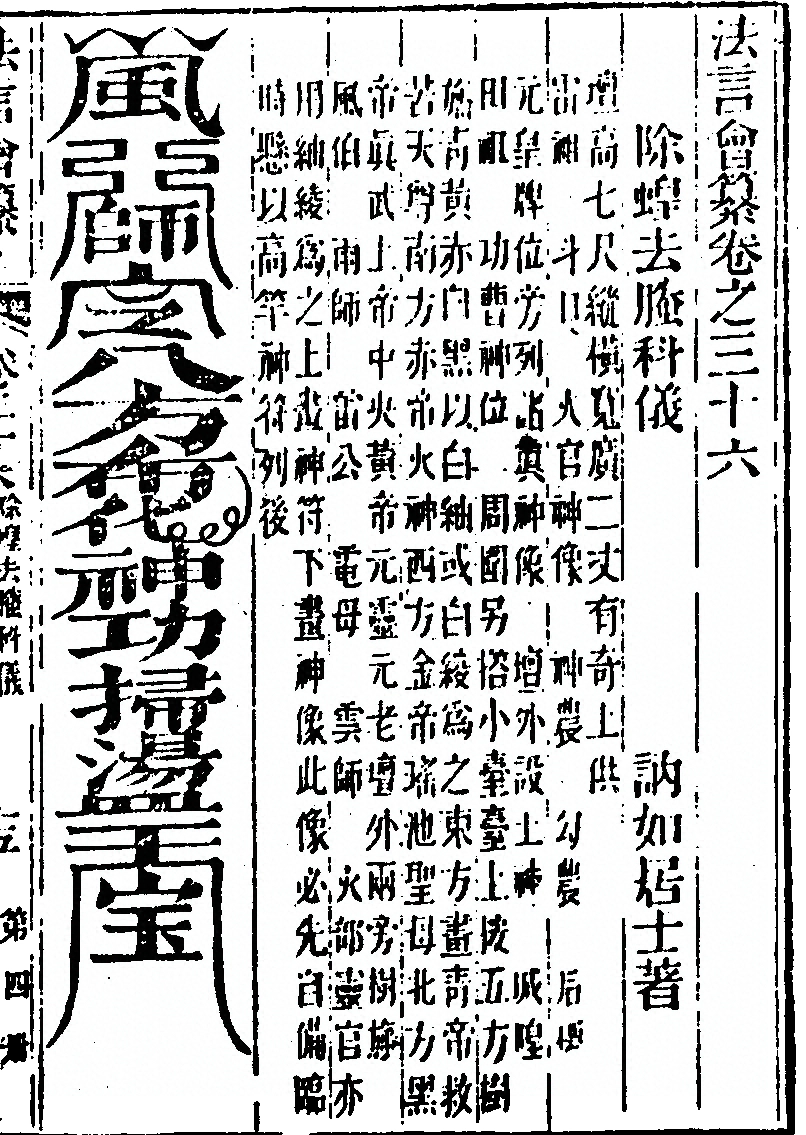 法言會纂卷之三十六
除蝗去螣科儀 訥如居士著
壇高七尺縱橫寬廣二丈有奇上供
雷神 斗口 火官神像 神農 勾農 后稷
元皇牌位旁列諸眞神像 壇外設土神 城隍
田祖 功曹神位 周圍另搭小臺臺上按五方樹
旛青黃赤白黑以白紬或白綾爲之東方畫青帝救
苦天尊南方赤帝火神西方金帝瑤池聖母北方黑
帝眞武上帝中央黃帝元靈元老壇外兩旁樹旛
風伯 雨師 雷公 電母 雲師 火部靈官亦
用紬綾爲之上畫神符下畫神像此像必先自備臨
時懸以高竿神符列後
師 八方 神功掃蕩 宝
法言會纂 除蝗去螣科儀 五 第四册